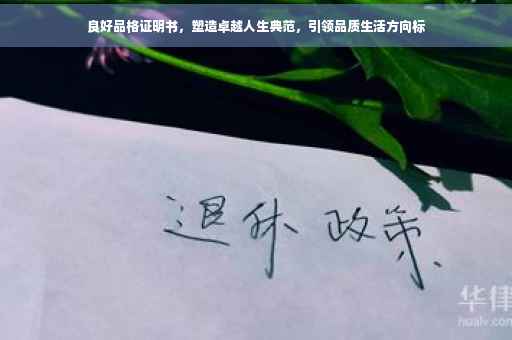 良好品格证明书，塑造卓越人生典范，引领品质生活方向标
退休 政策
华律
hualv.com